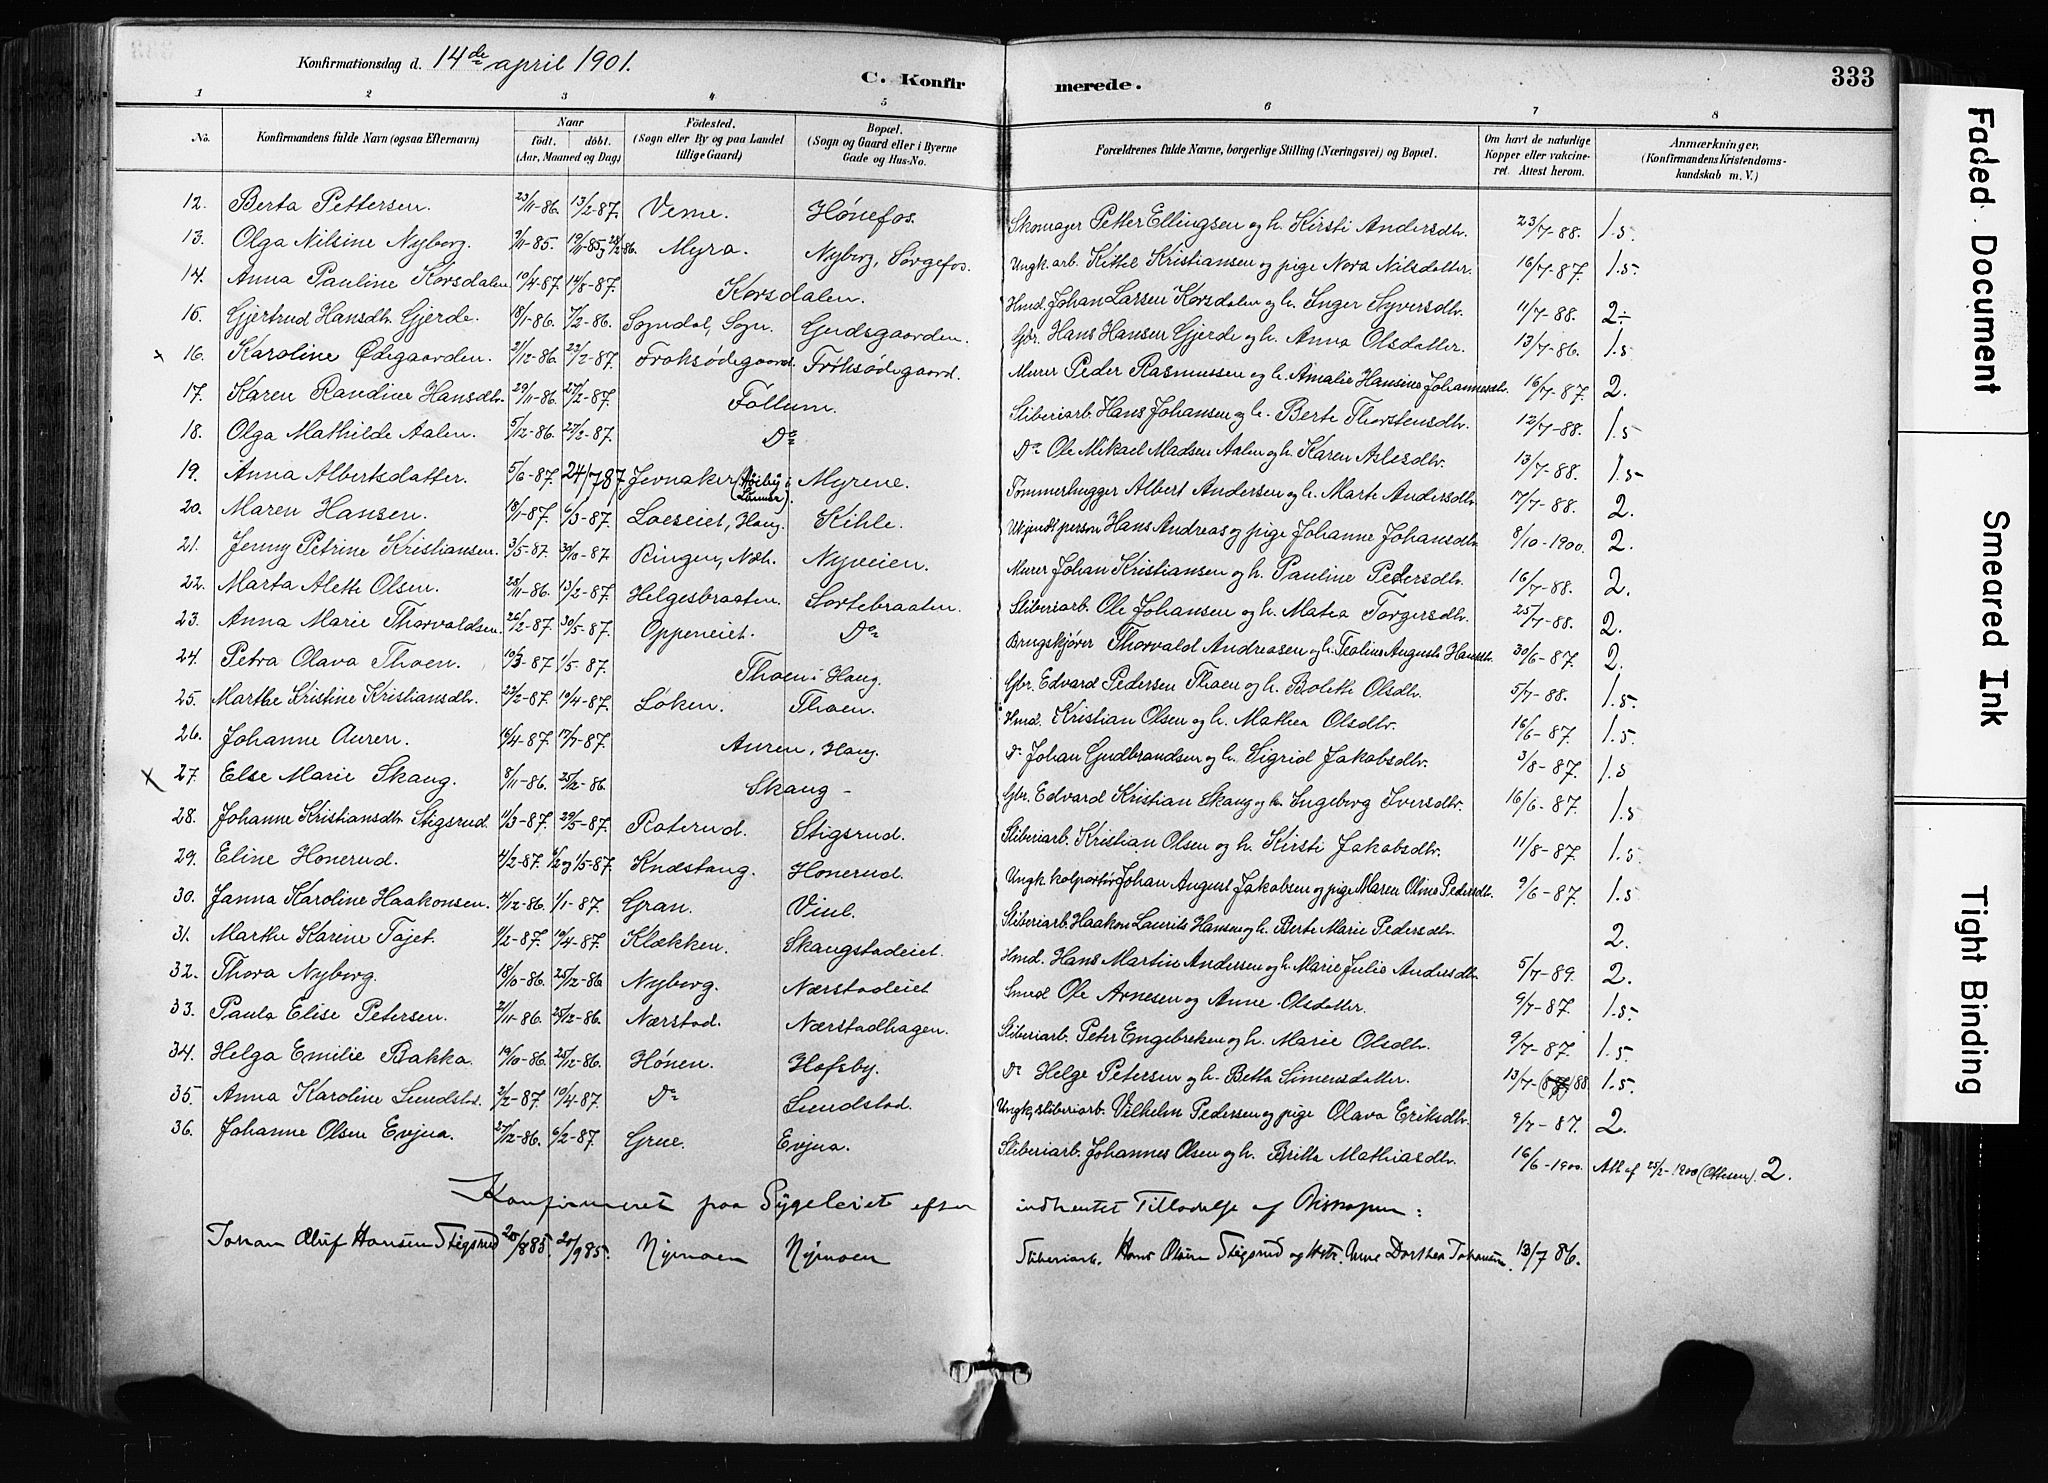 Konfirmationsdag d. 14de april 1901. C. Konfirmerede. 333
1 2 3 4 5 6 7 8
No. Konfirmandens fulde Navn (ogsaa Efternavn) Naar født. døbt. (Aar, Maaned og Dag) Fødested. (Sogn eller By og paa Landet tillige Gaard) Bopæl. (Sogn og Gaard eller i Byerne Gade og Hus-No. Forældrenes fulde Navne, borgerlige Stilling (Næringsvei) og Bopæl. Om havt de naturlige Kopper eller vakcineret. Attest herom. Anmærkninger, (Konfirmandens Kristendomskundskab m. V.)
12. Berta Pettersen. 23/11-86. 13/2-87. Veme. Hønefos. Skomager Petter Ellingsen og h. Kirsti Andersdtr. 23/7-88. 1.5.
13. Olga Nilsine Nyborg. 9/11-85. Myra. Nyborg, Sørgefos. Ungk. arb. Kittil Kristiansen og pige Nora Nilsdatter. 16/7-87. 1.5.
14. Anna Pauline Korsdalen 10/4-87. 14/8-87. Korsdalen. Hmd. Johan Larsen Korsdalen og h. Inger Syversdtr. 11/7-88. 2÷
15. Gjertrud Hansdtr. Gjerde. 18/1-86. 7/2-86. Sogndal, Sogn. Gudsgaarden. Gbr. Hans Hansen Gjerde og h. Anna Olsdatter. 13/7-86. 1.5
x 16. Karoline Ødegaarden. 21/12-86. 22/2-87. Frøksødegaard. Frøksødegaard. Murer Peder Rasmussen og h. Amalie Hansine Johannesdtr. 16/7-87. 2.
17. Karen Randine Hansdtr. 29/11-86. 27/2-87. Follum. Sliberiarb. Hans Johansen og h. Berte Thorstensdtr. 12/7-88. 1.5
18. Olga Mathilde Aalen. 5/12-86. 27/2-87. Do Do Ole Mikael Madsen Aalen og h. Karen Aslesdtr. 13/7-88. 1.5
19. Anna Albertsdatter. 5/6-87. 24/7 87 Jevnaker (Høiby i Lunner). Myrene. Tømmerhugger Albert Andersen og h. Marte Andersdtr. 7/7-88. 2.
20. Maren Hansen. 18/1-87. 6/3-87. Loeseiet, Haug. Kihle. Ukjendt person Hans Andreas og pige Johanne Johansdtr. 8/10-1900. 2.
21. Jenny Petrine Kristiansen. 3/5-87. 30/10-87. Ringen, Næs. Nyveien. Murer Johan Kristiansen og h. Pauline Pedersdtr. 16/7-88. 2.
22. Marta Alette Olsen. 28/11-86. 13/2-87. Helgesbraaten. Sortebraaten. Sliberiarb. Ole Johansen og h. Matea Torgersdtr. 25/7-88. 2.
23. Anna Marie Thorvaldsen. 26/2-87. 30/5-87. Oppeneiet. Do Brugskjører Thorvald Andreasen og h. Teoline Augusta Hansdtr. 30/6-87. 2.
24. Petra Olava Thoen. 10/3-87. 1/5-87. Thoen i Haug. Gbr. Edvard Pedersen Thoen og h. Bolette Olsdtr. 5/7-88. 1.5.
25. Marthe Kristine Kristiansdtr. 23/2-87. 10/4-87. Løken. Thoen. Hmd. Kristian Olsen og h. Mathea Olsdtr. 16/6-87. 1.5.
26. Johanne Auren. 16/4-87. 17/7-87. Auren, Haug. Do Johan Gudbrandsen og h. Sigrid Jakobsdtr. 3/8-87. 1.5
x 27. Else Marie Skaug. 8/11-86. 25/12-86. Skaug - Gbr. Edvard Kristian Skaug og h. Ingeborg Iversdtr. 16/6-87. 1.5
28. Johanne Kristiansdtr. Stigsrud. 11/3-87. 29/5-87. Raterud. Stigsrud. Sliberiarb. Kristian Olsen og h. Kirsti Jakobsdtr. 11/8-87. 1.5.
29. Eline Honerud. 4/2-87. 1/5-87. Knestang. Honerud. Ungk. kolportør Johan August Jakobsen og pige Maren Oline Pedersdtr. 9/6-87. 1.5.
30. Janna Karoline Haakonsen. 4/12-86. 1/1-87. Gran. Viul. Sliberiarb. Haakon Laurits Hansen og h. Berte Marie Pedersdtr. 2.
31. Marthe Karine Tajet. 1/2-87. 10/4-87. Klækken. Skaugstadeiet. Hmd. Hans Martin Andersen og h. Marie Julie Andersdtr. 5/7-89. 2.
32. Thora Nyborg. 18/10-86. 25/12-86 Nyborg. Nærstadeiet Smed Ole Arnesen og Anne Olsdatter. 9/7-87. 1.5.
33. Paula Elise Petersen. 21/11-86. 25/12-86. Nærstad. Nærstadhagen. Sliberiarb. Peter Engebretsen og h. Marie Olsdtr. 9/7-87. 1.5.
34. Helga Emilie Bakka. 19/10-86. 25/12-86. Hønen. Hofsby. Do Helge Petersen og h. Betta Simensdatter. 13/7-88. 1.5.
35. Anna Karoline Sundstad. 2/2-87. 10/4-87. Do Sundstad. Ungk. sliberiarb. Vilhelm Pedersen og pige Olava Eriksdtr. 9/7-87. 2.
36. Johanne Olsen Evjua. 27/12-86. 6/2-87. Grue. Evjua. Sliberiarb. Johannes Olsen og h. Britta Mathiasdtr. 16/6-1900. Att. af 25/2-1900 (Ottesen). 2.
Konfirmeret paa Sygeleiet efter indhentet Tilladelse af Biskopen:
Johan Oluf Hansen Stigsrud 20/8 85. 20/9 85. Nymoen Nymoen Sliberiarb. Hans Olsen Stigsrud og Hstr. Anne Dorthea Johansen. 13/7 86.
Faded Document
Smeared Ink
Tight Binding